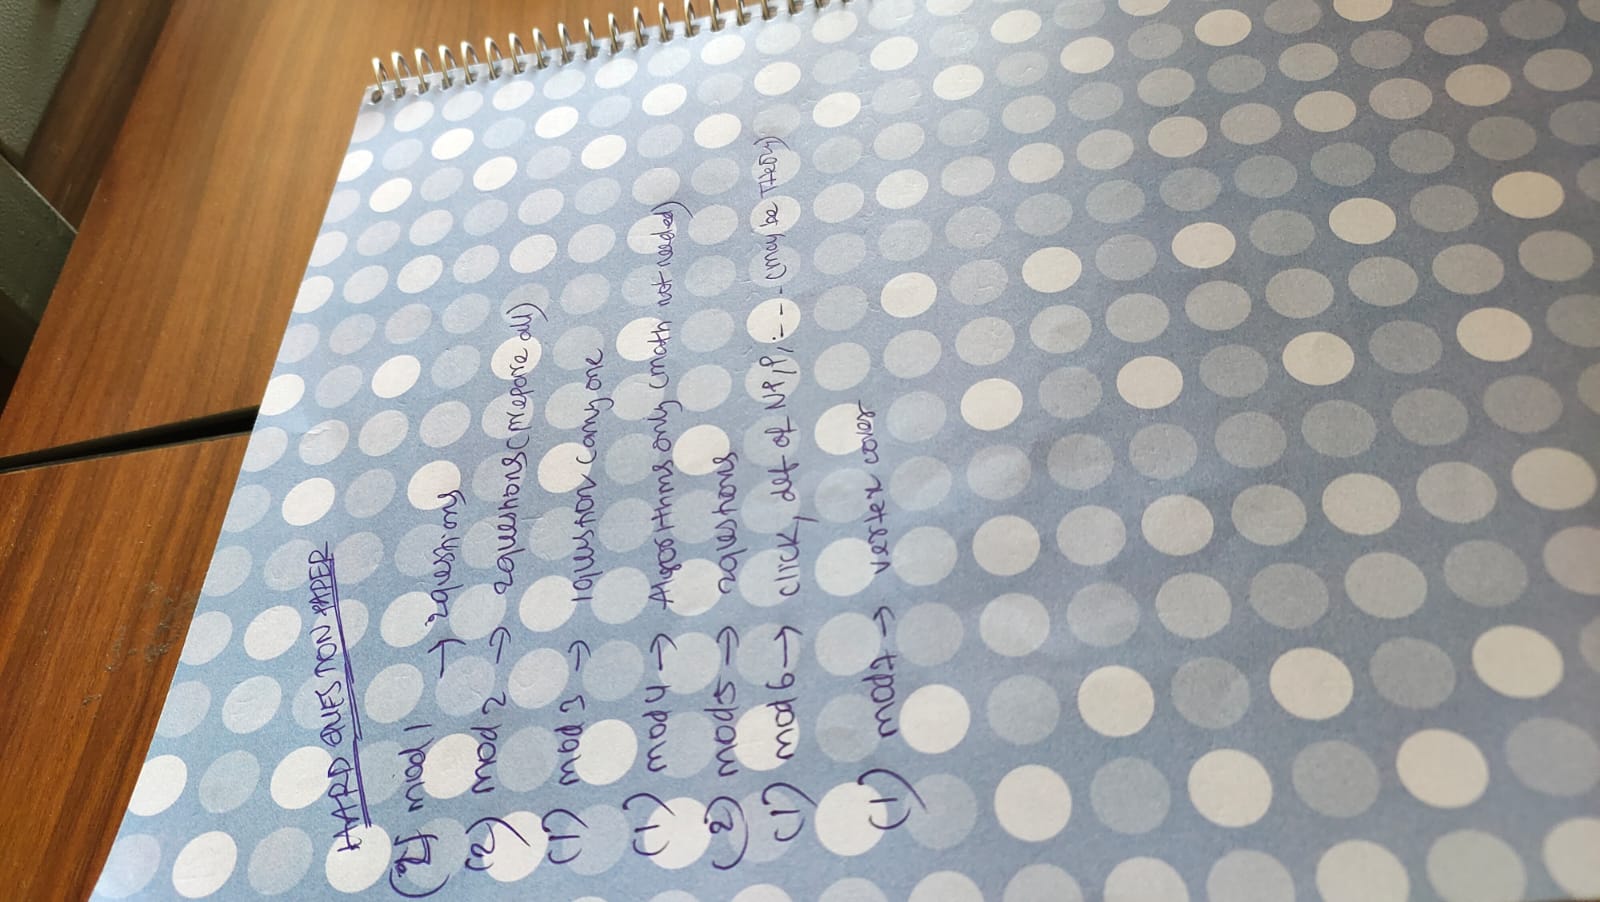 HARD QUESTION PAPER
(2) mod 1 → 2questions
(2) mod 2 → 2questions (prepare all)
(1) mod 3 → 1question (any one
(1) mod 4 → Algorithms only (math not needed)
(2) mod 5 → 2questions
(1) mod 6 → click, def of NP, P, :--- (may be Theory)
(1) mod 7 → vertex cover